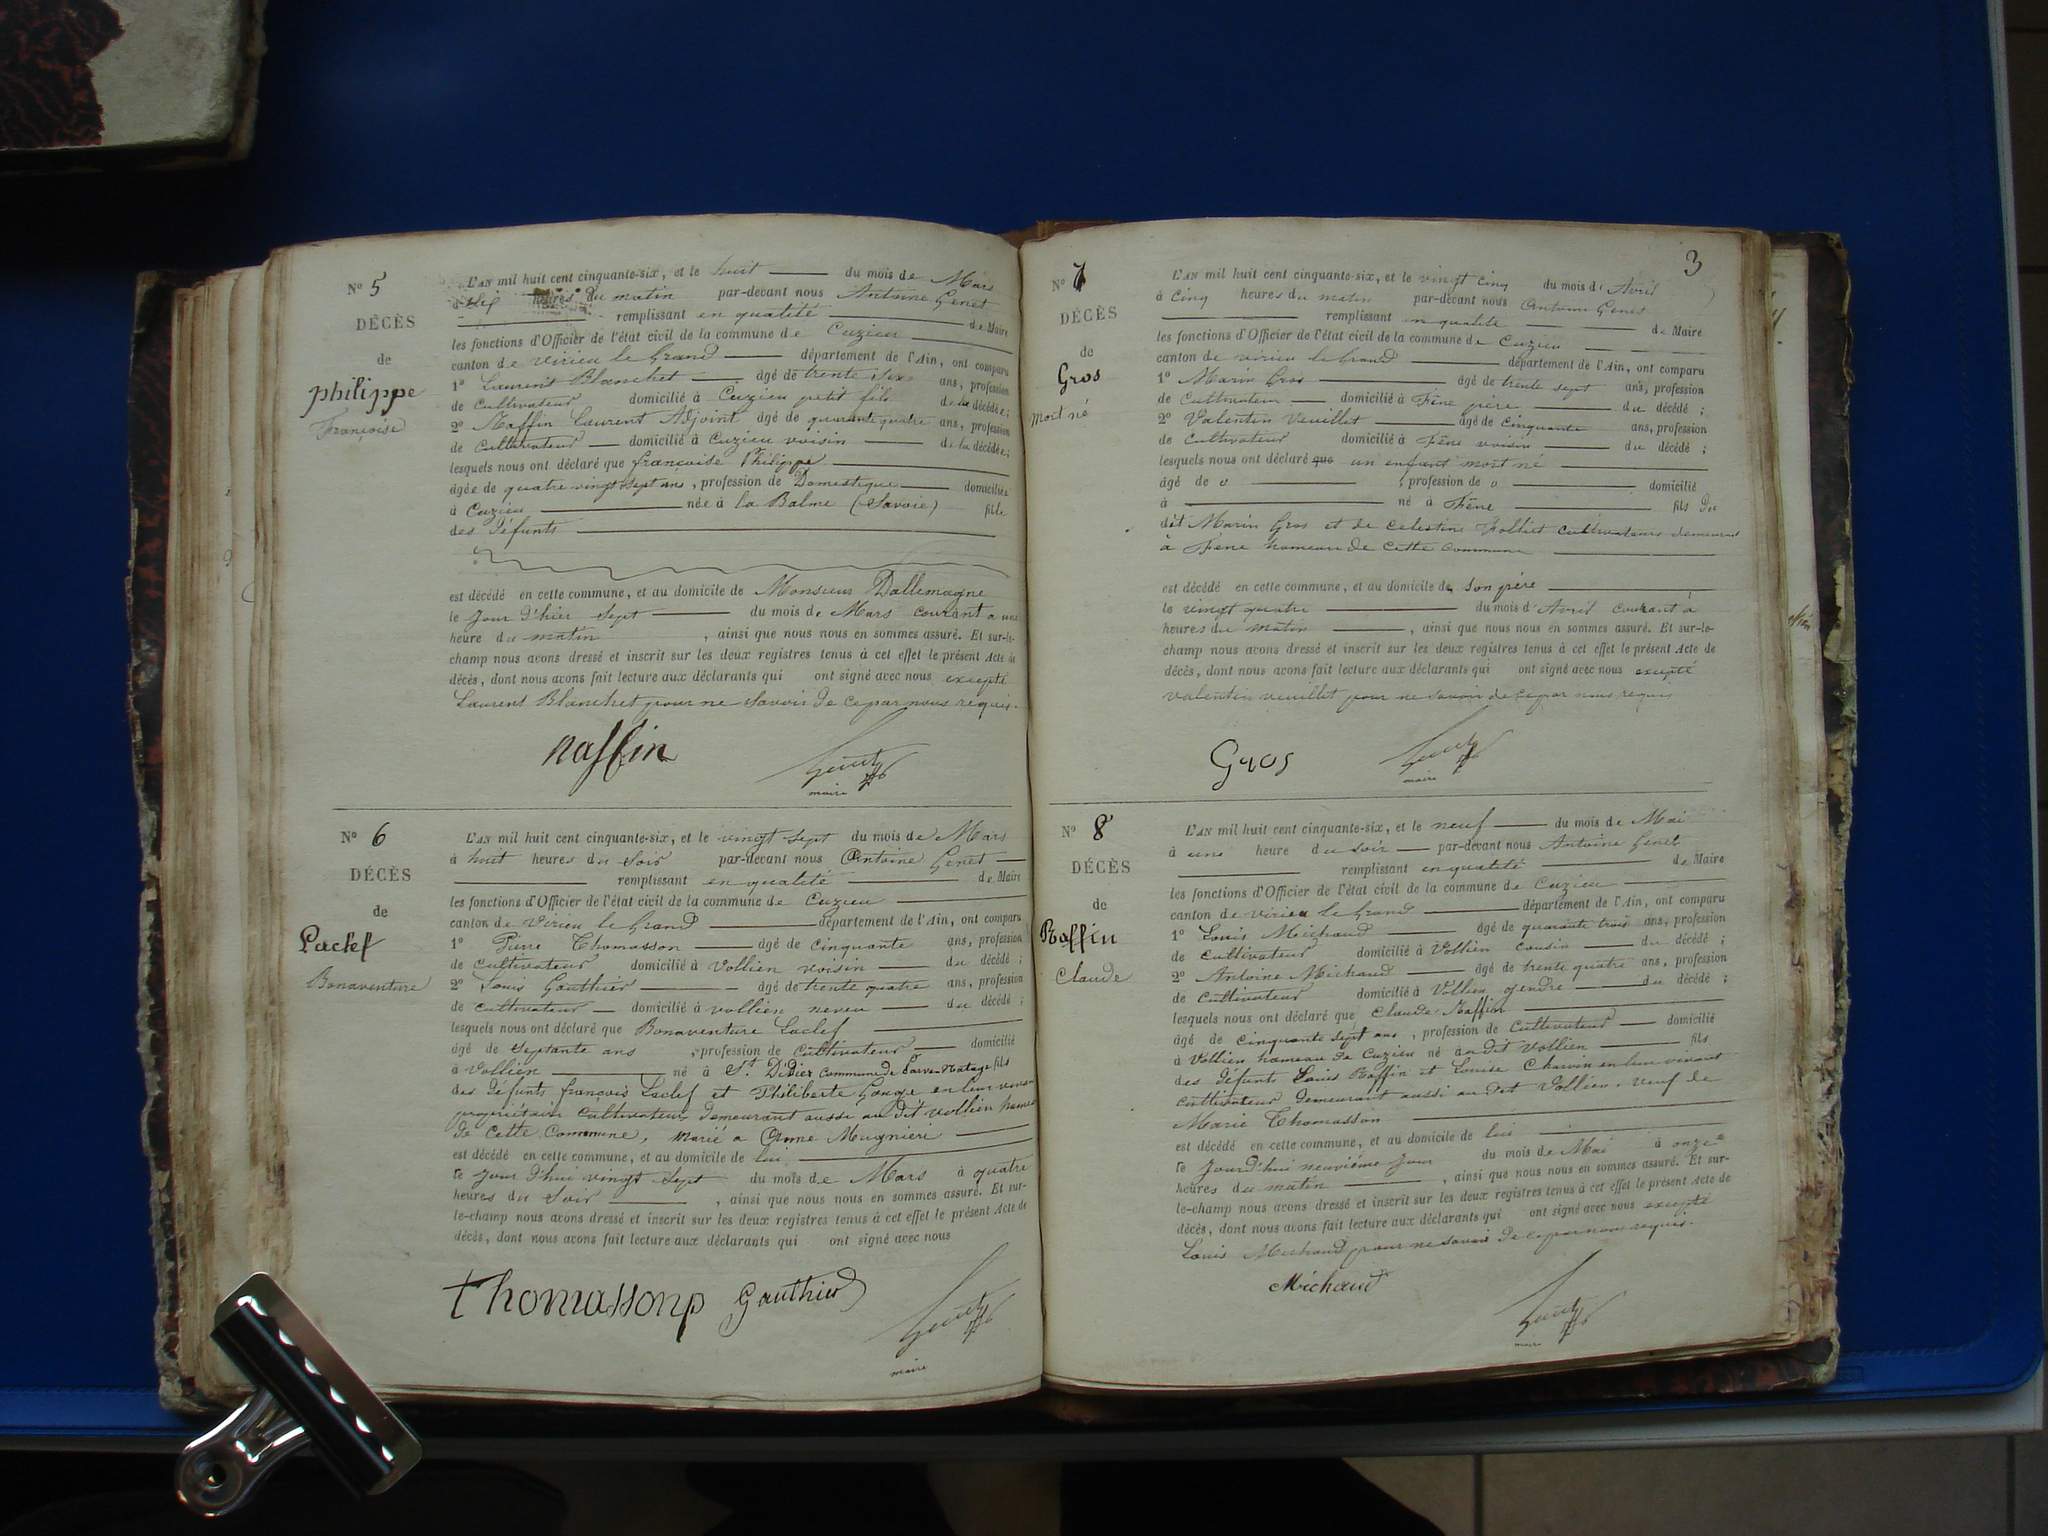 N° 5
DÉCÈS
de
philippe
Françoise
L'AN mil huit cent cinquante-six, et le huit du mois de Mars
heures du matin par-devant nous Antoine Genet
remplissant en qualité de Maire
les fonctions d'Officier de l'état civil de la commune de Cuzieu
canton de Virieu le Grand département de l'Ain, ont comparu
1° Laurent Blanchet âgé de trente six ans, profession
de Cultivateur domicilié à Cuzieu petit fils de la décédée;
2° Raffin Laurent Adjoint âgé de quarante quatre ans, profession
de Cultivateur domicilié à Cuzieu voisin de la décédée;
lesquels nous ont déclaré que françoise Philippe
âgée de quatre vingt sept ans, profession de Domestique domiciliée
à Cuzieu née à la Balme (Savoie) fille
des défunts
est décédé en cette commune, et au domicile de Monsieur Dallemagne
le jour d'hier sept du mois de Mars courant a une
heure du matin, ainsi que nous nous en sommes assuré. Et sur-le-
champ nous avons dressé et inscrit sur les deux registres tenus à cet effet le présent Acte de
décès, dont nous avons fait lecture aux déclarants qui ont signé avec nous excepté
Laurent Blanchet pour ne savoir de ce par nous requis.
Raffin Genet
maire
N° 6
DÉCÈS
de
Laclef
Bonaventure
L'AN mil huit cent cinquante-six, et le vingt sept du mois de Mars
à huit heures du Soir par-devant nous Antoine Genet
remplissant en qualité de Maire
les fonctions d'Officier de l'état civil de la commune de Cuzieu
canton de Virieu le Grand département de l'Ain, ont comparu
1° Pierre Thomasson âgé de Cinquante ans, profession
de Cultivateur domicilié à Vollien voisin du décédé;
2° Louis Gauthier âgé de trente quatre ans, profession
de Cultivateur domicilié à vollien neveu du décédé;
lesquels nous ont déclaré que Bonaventure Laclef
âgé de Septante ans, profession de Cultivateur domicilié
à Vollien né à St Didier Commune de fils
des défunts françois Laclef et Philiberte en leur vivant
propriétaires Cultivateurs demeurant aussi au dit vollien hameau
de cette Commune, marié a Anne Mugnieri
est décédé en cette commune, et au domicile de lui
le jour d'hui vingt Sept du mois de Mars à quatre
heures du Soir, ainsi que nous nous en sommes assuré. Et sur-
le-champ nous avons dressé et inscrit sur les deux registres tenus à cet effet le présent Acte de
décès, dont nous avons fait lecture aux déclarants qui ont signé avec nous
Thomasson Gauthier Genet
maire
3
N° 7
DÉCÈS
de
Gros
mort né
L'AN mil huit cent cinquante-six, et le vingt cinq du mois d'Avril
à Cinq heures du matin par-devant nous Antoine Genet
remplissant en qualité de Maire
les fonctions d'Officier de l'état civil de la commune de Cuzieu
canton de virieu le Grand département de l'Ain, ont comparu
1° Marin Gros âgé de trente sept ans, profession
de Cultivateur domicilié à Fêne père du décédé;
2° Valentin Veuillet âgé de Cinquante ans, profession
de Cultivateur domicilié à Fêne voisin du décédé;
lesquels nous ont déclaré que un enfant mort né
âgé de o, profession de o domicilié
à né à Fêne fils du
dit Marin Gros et de Celestine Cultivateurs demeurant
à Fene hameau de Cette Commune
est décédé en cette commune, et au domicile de son père
le vingt quatre du mois d'Avril courant à
heures du matin, ainsi que nous nous en sommes assuré. Et sur-le-
champ nous avons dressé et inscrit sur les deux registres tenus à cet effet le présent Acte de
décès, dont nous avons fait lecture aux déclarants qui ont signé avec nous excepté
valentin veuillet pour ne savoir de ce par nous requis
Gros Genet
maire
N° 8
DÉCÈS
de
Raffin
Claude
L'AN mil huit cent cinquante-six, et le neuf du mois de Mai
à une heure du soir par-devant nous Antoine Genet
remplissant en qualité de Maire
les fonctions d'Officier de l'état civil de la commune de Cuzieu
canton de virieu le Grand département de l'Ain, ont comparu
1° Louis Michaud âgé de quarante trois ans, profession
de Cultivateur domicilié à Vollien cousin du décédé;
2° Antoine Michaud âgé de trente quatre ans, profession
de Cultivateur domicilié à Vollien gendre du décédé;
lesquels nous ont déclaré que Claude Raffin
âgé de Cinquante sept ans, profession de Cultivateur domicilié
à Vollien hameau de Cuzieu né au dit Vollien fils
des défunts Louis Raffin et Louise Charvin en leur vivant
Cultivateur demeurant aussi au dit Vollien, veuf de
Marie Thomasson
est décédé en cette commune, et au domicile de lui
le jourd'hui neuvième jour du mois de Mai à onze
heures du matin, ainsi que nous nous en sommes assuré. Et sur-
le-champ nous avons dressé et inscrit sur les deux registres tenus à cet effet le présent Acte de
décès, dont nous avons fait lecture aux déclarants qui ont signé avec nous excepté
Louis Michaud pour ne savoir de ce par nous requis.
Michaud Genet
maire